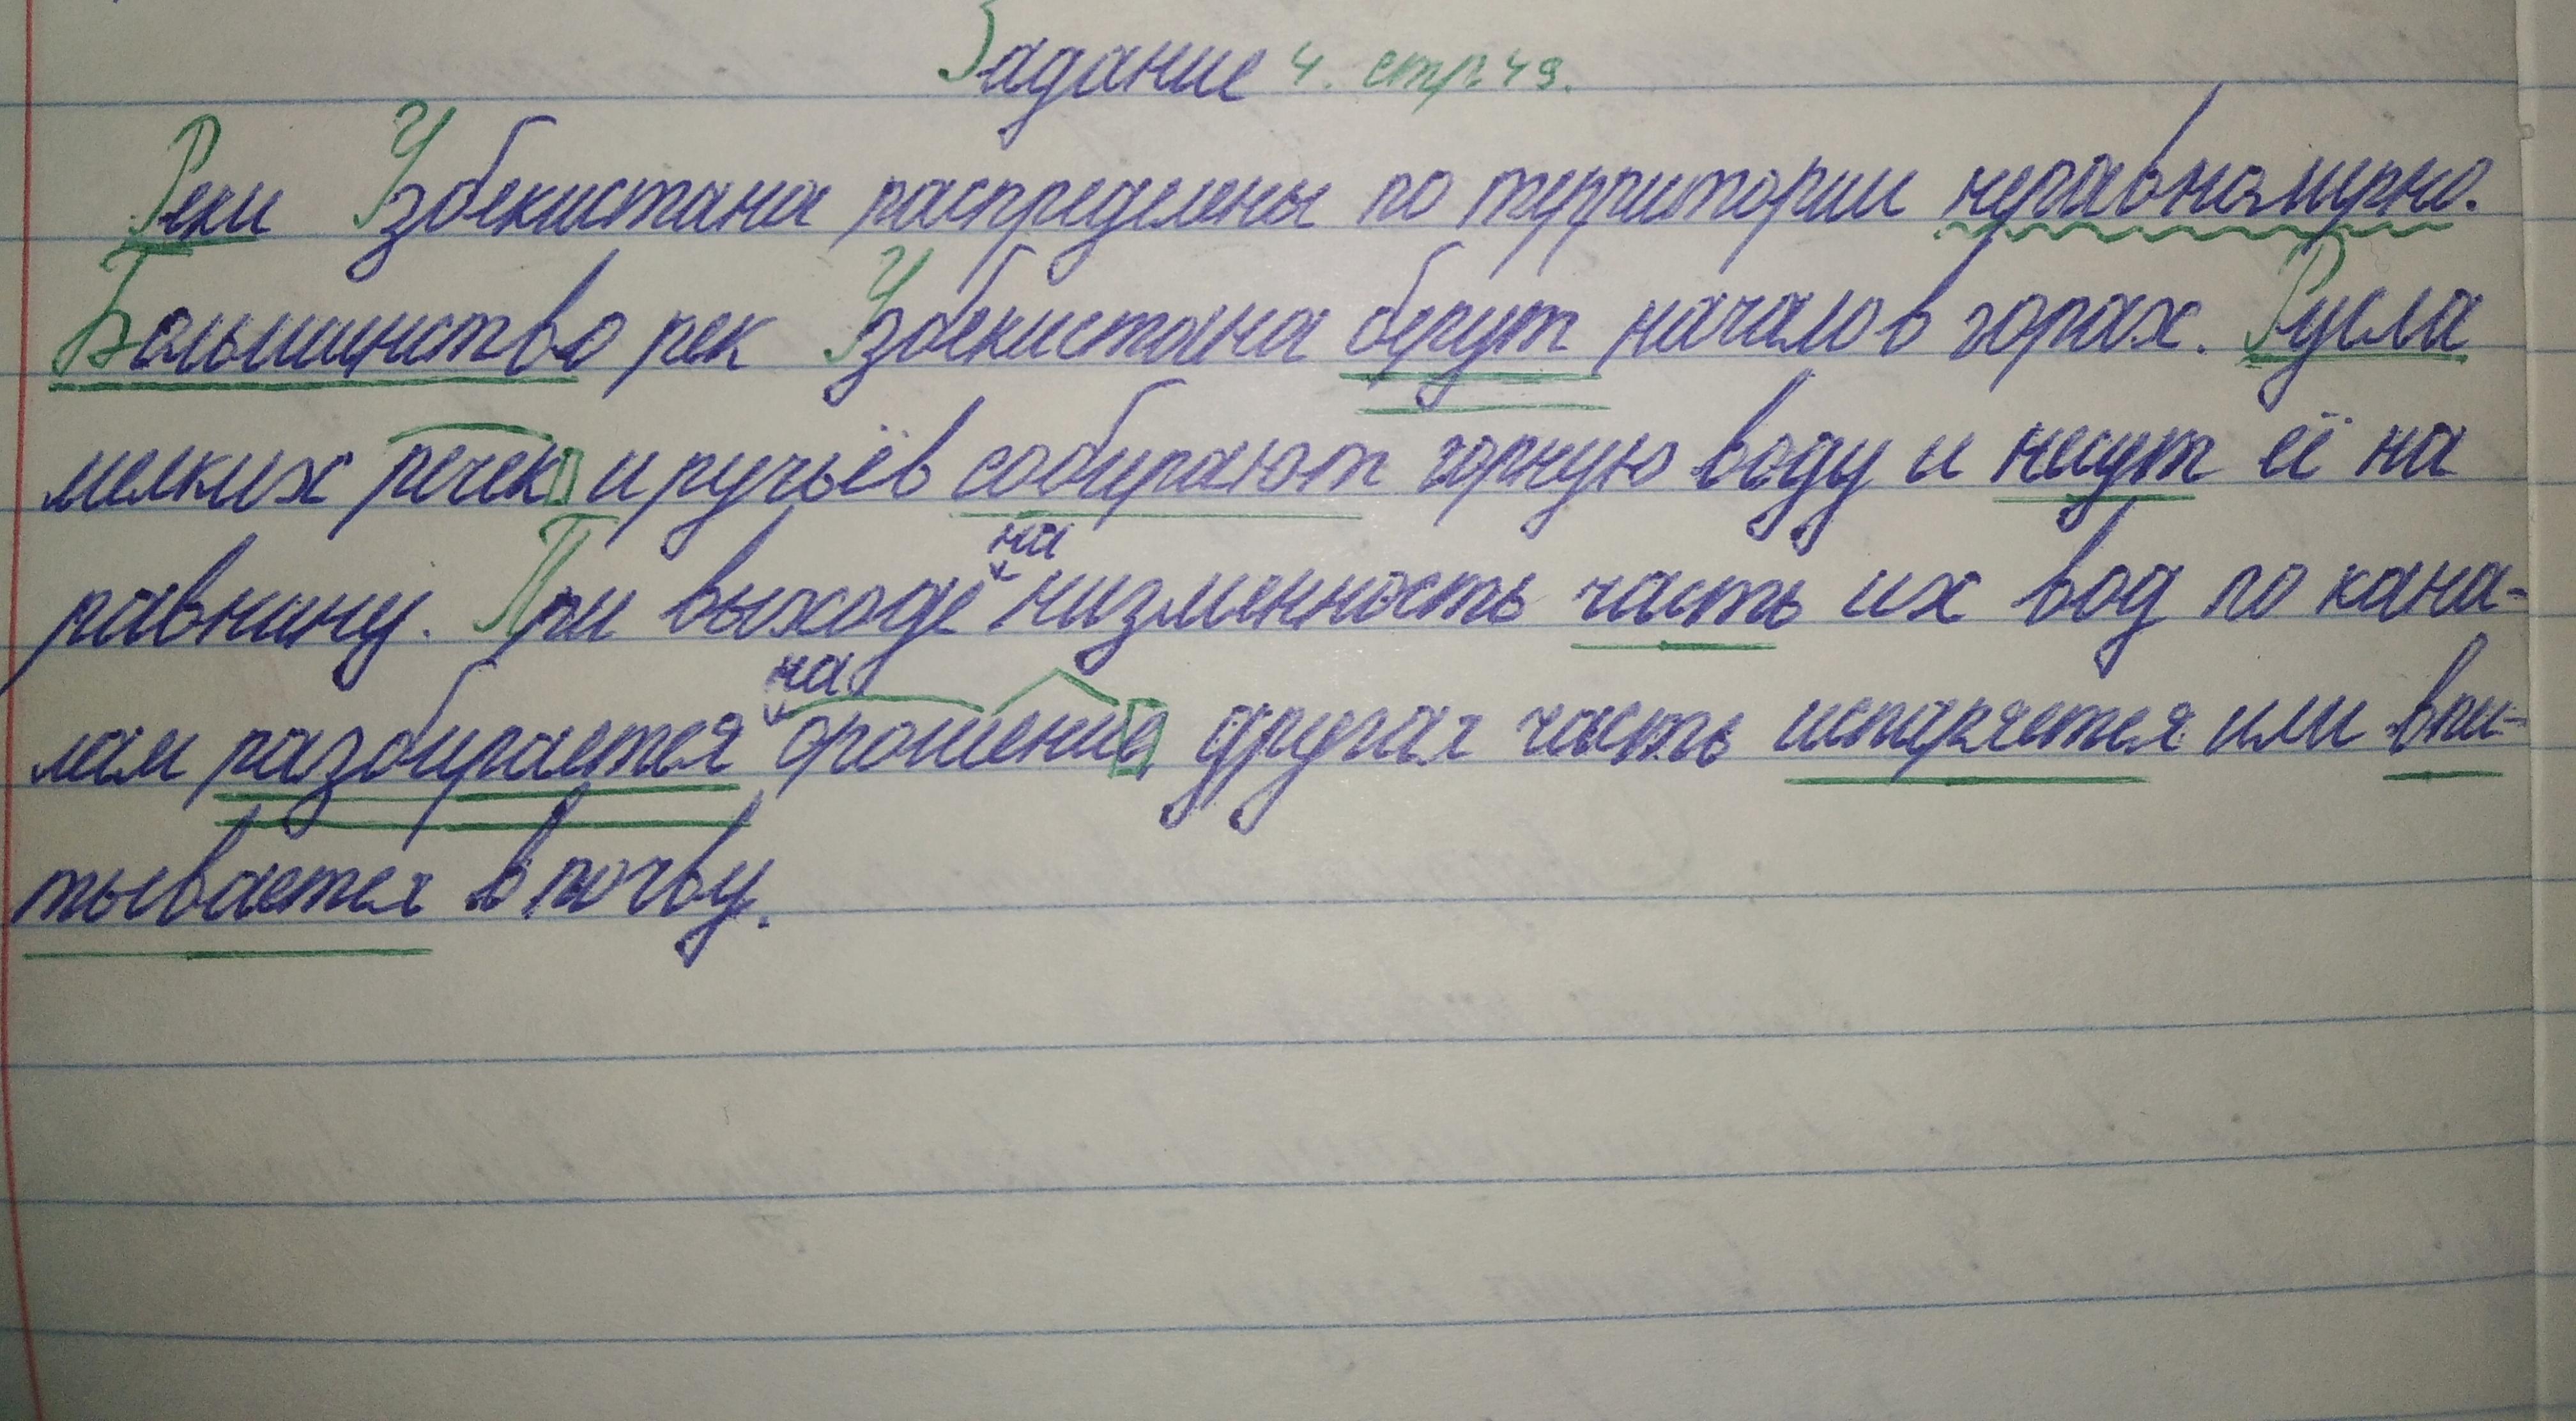 Задание 4. стр 49.
Реки Узбекистана распределены по территории неравномерно.
Большинство рек Узбекистана берут начало в горах. Русла
мелких речек и ручьёв собирают горную воду и несут её на
равнину. При выходе на низменность часть их вод по кана-
лам разбирается на орошение другая часть испаряется или впи-
тывается в почву.